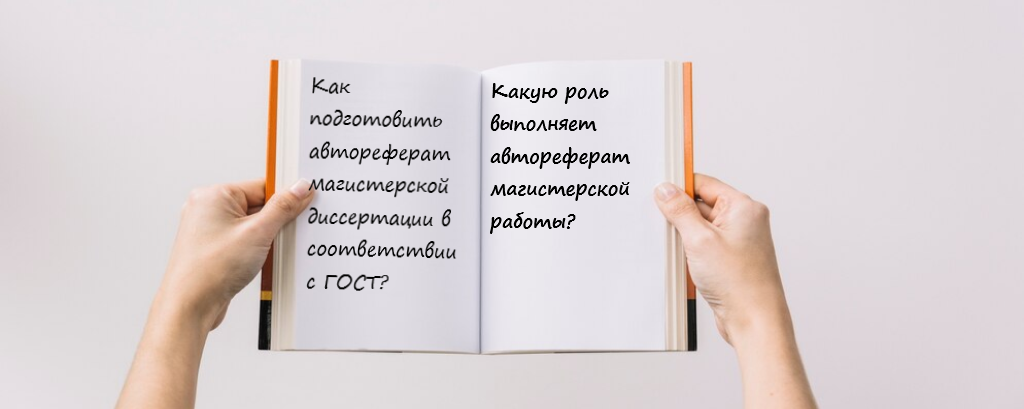 Как
подготовить
автореферат
магистерской
диссертации в
соответствии
с ГОСТ?
Какую роль
выполняет
автореферат
магистерской
работы?